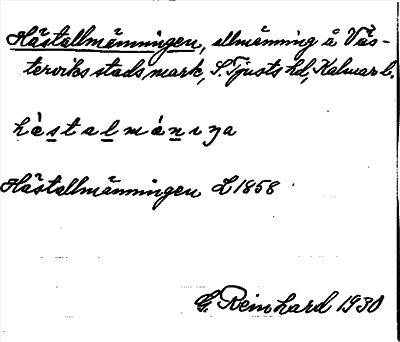 Hästallmänningen, allmänning å Väs-
terviks stads mark, S. Tjusts hd, Kalmar l.
hästalmäniŋa
Hästallmänningen L 1858
G. Reinhard 1930